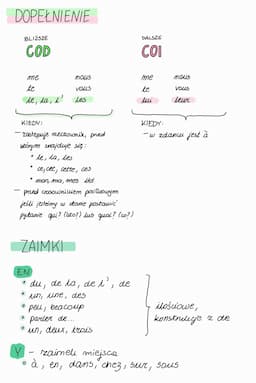 DOPEŁNIENIE
BLIŻSZE DALSZE
COD COI
me nous me nous
te vous te vous
le, la, l' les lui leur
KIEDY: KIEDY:
- zastępuje rzeczownik, przed - w zdaniu jest à
którym znajduje się:
• le, la, les
• ce, cet, cette, ces
• mon, ma, mes itd
- przed czasownikiem
jeśli jesteśmy w stanie postawić
pytanie qui? (kto?) lub quoi? (co?)
ZAIMKI
EN
• du, de la, de l', de
• un, une, des
• peu, beaucoup ilościowe,
• parler de... konstrukcje z de
• un, deux, trois
Y - zaimek miejsca
• à, en, dans, chez, sur, sous